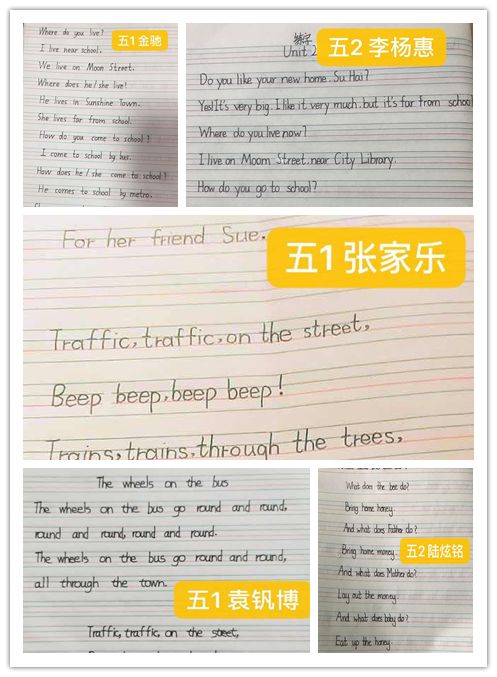 Where do you live?
I live near school.
We live on Moon Street.
Where does he/she live?
He lives in Sunshine Town.
She lives far from school.
How do you come to school?
I come to school by bus.
How does he/she come to school?
He comes to school by metro.
五1 金驰
练字
Unit 2
五2 李杨惠
Do you like your new home. Su Hai?
Yes!It's very big. I like it very much. but it's far from school
Where do you live now?
I live on Moom Street.near City Library.
How do you go to school?
For her friend Sue.
五1 张家乐
Traffic, traffic, on the street,
Beep beep, beep beep!
Trains, trains, through the trees,
The wheels on the bus
The wheels on the bus go round and round,
round and round, round and round.
The wheels on the bus go round and round,
all through the town.
五1 袁钒博
Traffic, traffic, on the street,
What does the bee do?
Bring home honey.
And what does Father do?
Bring home money.
五2 陆炫铭
And what does Mother do?
Lay out the money.
And what does baby do?
Eat up the honey.